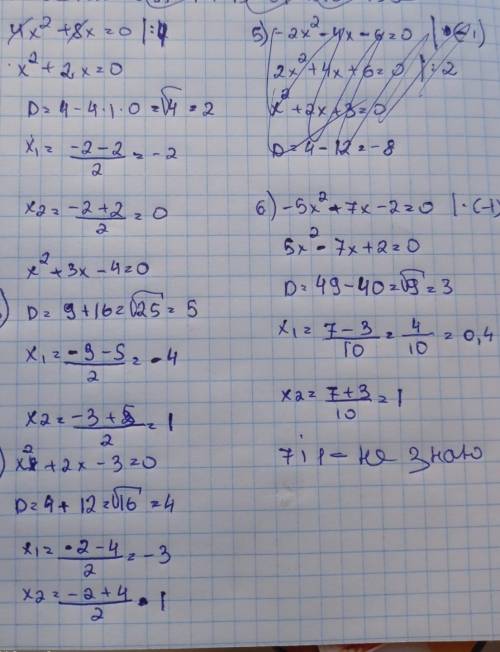 4x² + 8x = 0 |:4
x² + 2x = 0
D = 4 - 4·1·0 = √4 = 2
x₁ = (-2-2)/2 = -2
x₂ = (-2+2)/2 = 0
x² + 3x - 4 = 0
D = 9 + 16 = √25 = 5
x₁ = (-3-5)/2 = -4
x₂ = (-3+5)/2 = 1
x² + 2x - 3 = 0
D = 4 + 12 = √16 = 4
x₁ = (-2-4)/2 = -3
x₂ = (-2+4)/2 = 1
5) -2x² - 4x - 6 = 0 |·(-1)
2x² + 4x + 6 = 0 |:2
x² + 2x + 3 = 0
D = 4 - 12 = -8
6) -5x² + 7x - 2 = 0 |·(-1)
5x² - 7x + 2 = 0
D = 49 - 40 = √9 = 3
x₁ = (7-3)/10 = 4/10 = 0,4
x₂ = (7+3)/10 = 1
не знаю